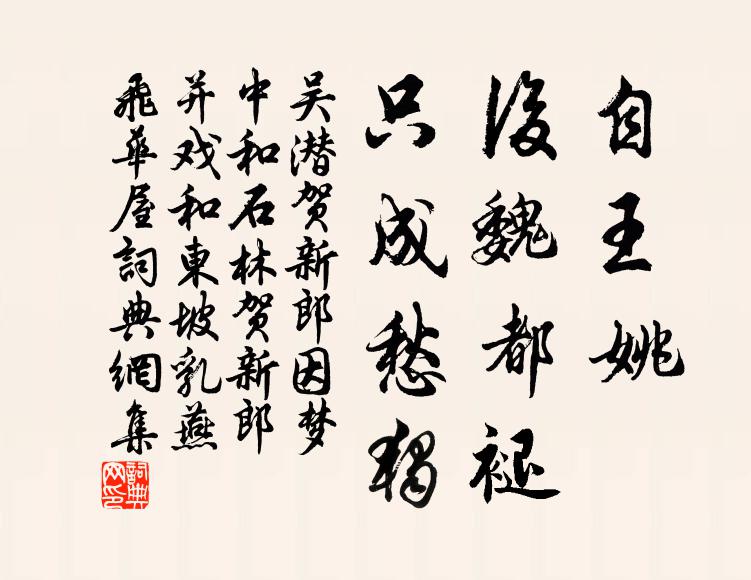 自王姚
後魏都褪
只成愁独
吴潜贺新郎因梦
中和石林贺新郎
并戏和東坡乳燕
飛華屋詞典網集
詞典
网印